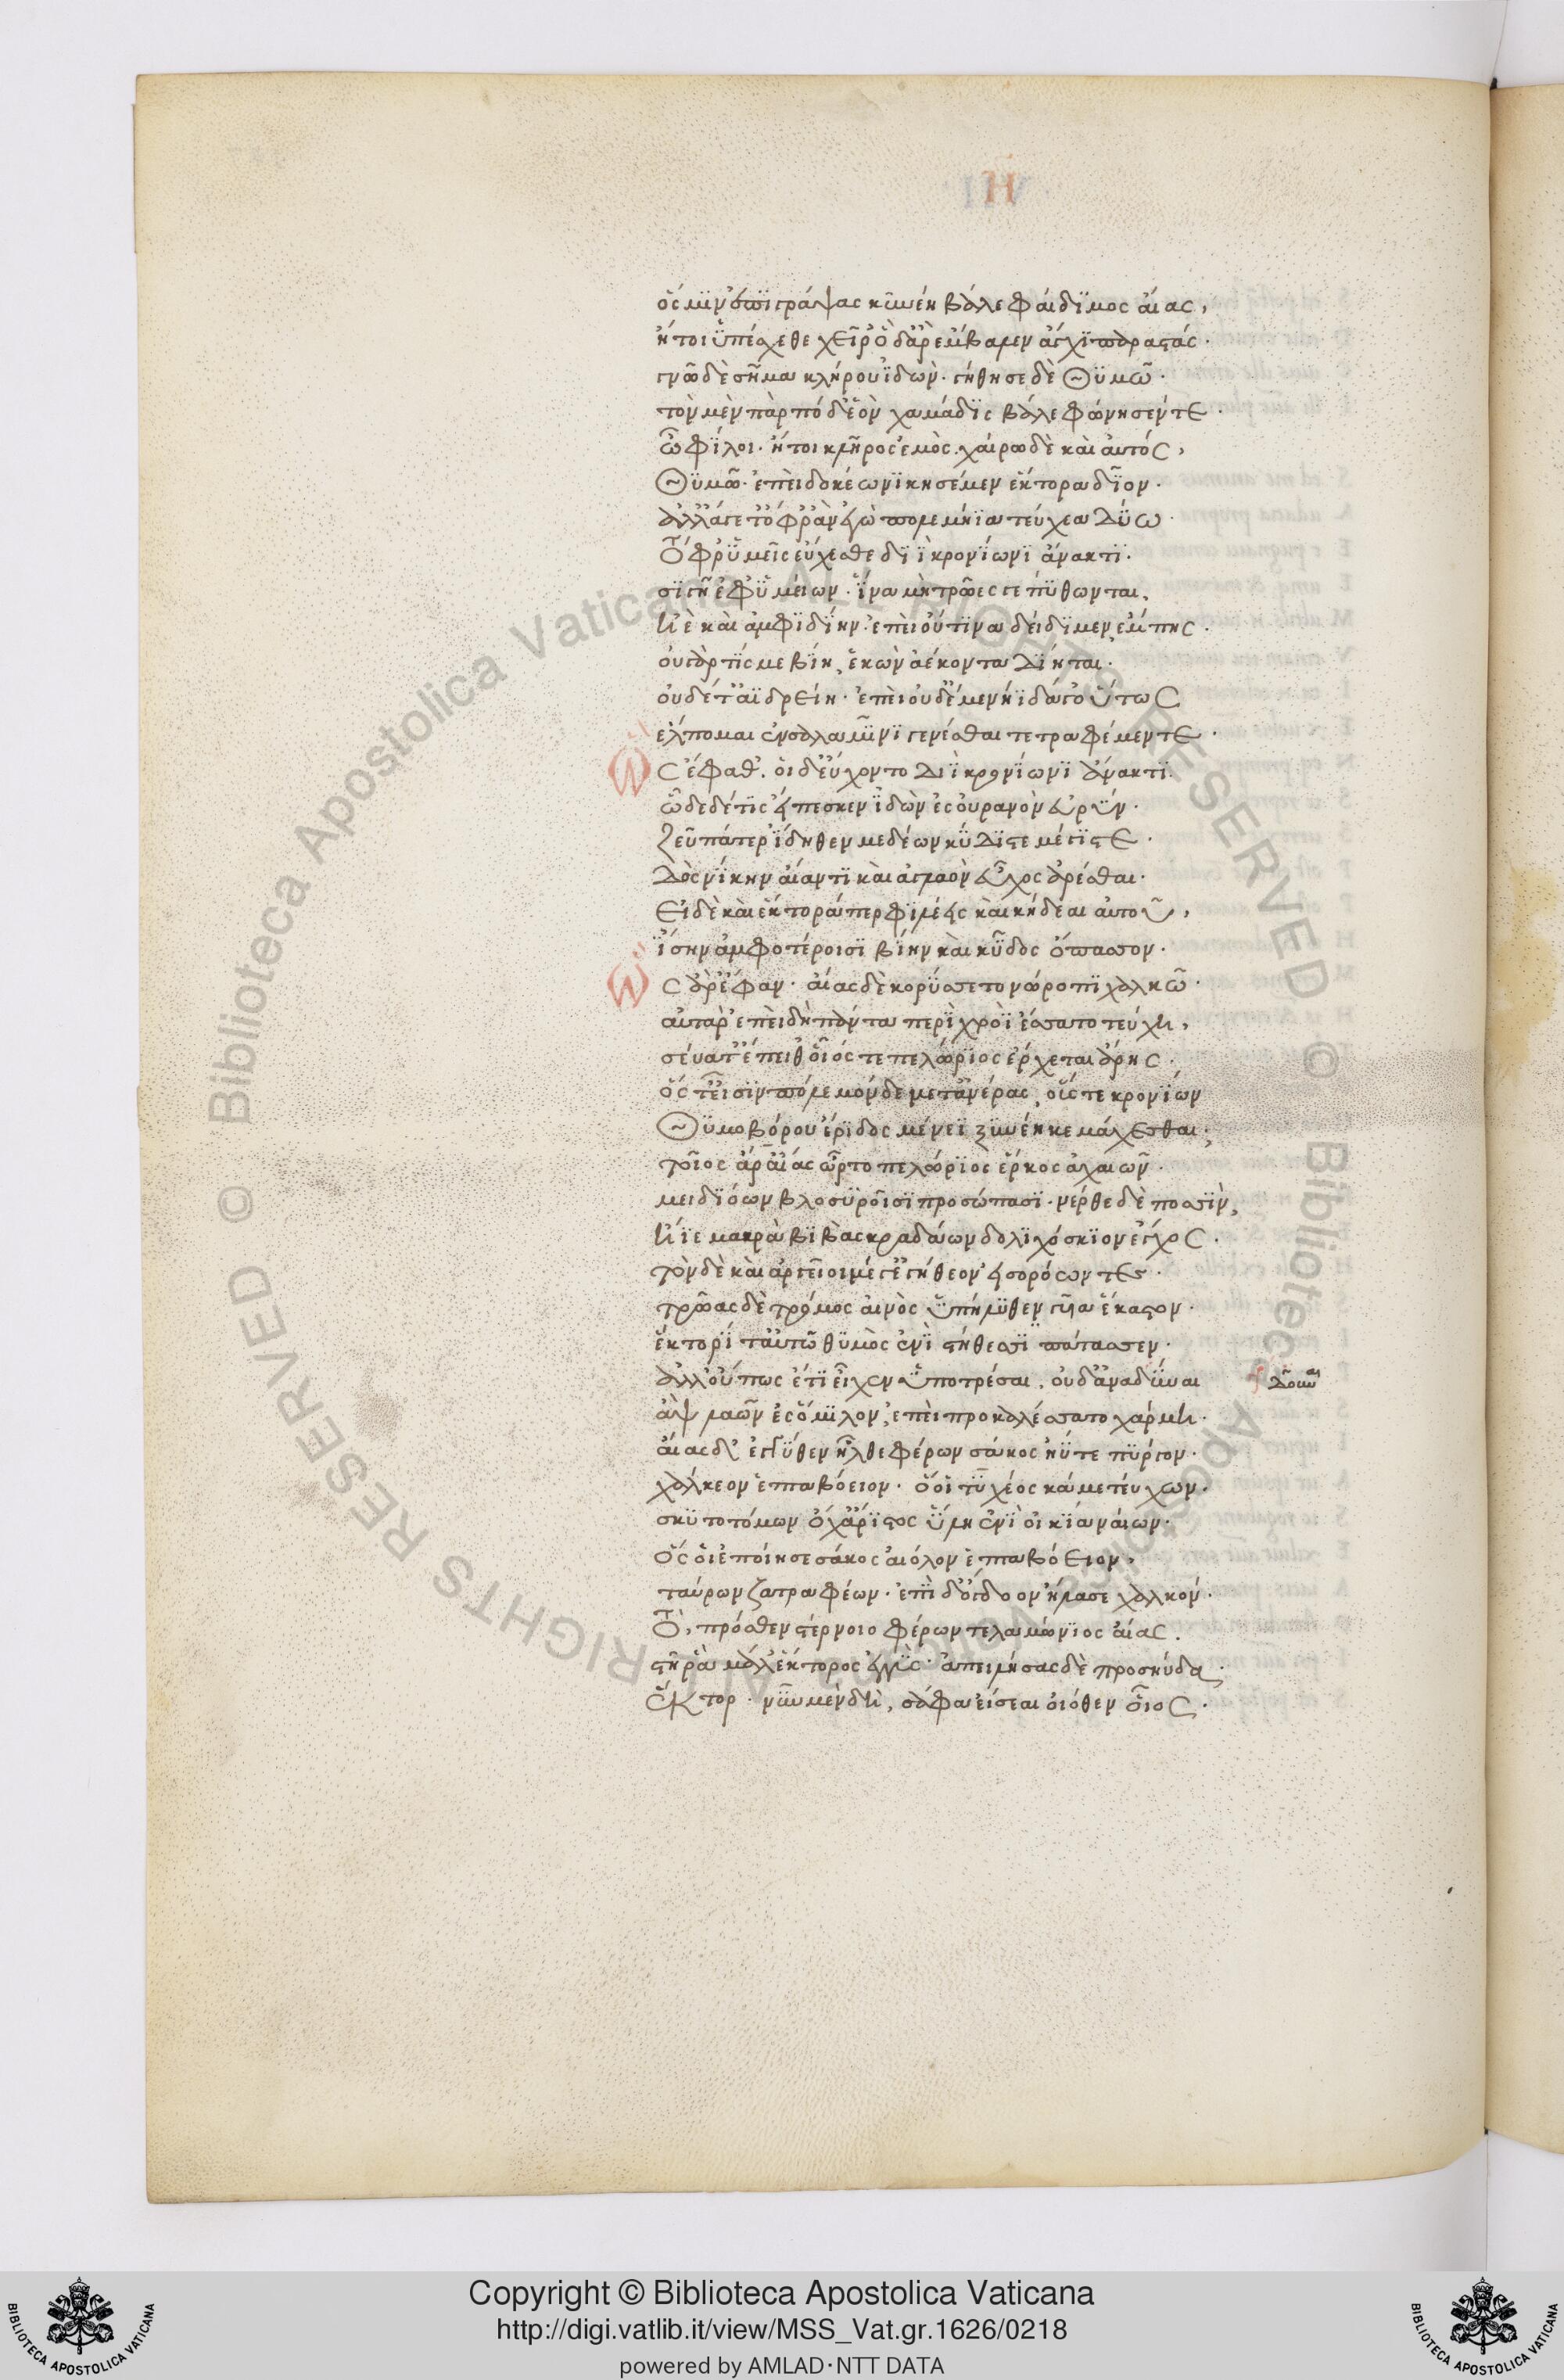 Η
ὅς μιν ἐπιγράψας κυνέῃ βάλε φαίδιμος αἴας,
ἤτοι ὑπέσχεθε χεῖρ' ὁ δ' ἄρ' ἔμβαλεν ἄγχι παραστάς·
γνῶ δὲ σῆμα κλήρου ἰδών· γήθησε δὲ θυμῶ·
τὸν μὲν πὰρ πόδ' ἑὸν χαμάδις βάλε φώνησέν τε·
ὦ φίλοι· ἤτοι κλῆρος ἐμὸς· χαίρω δὲ καὶ αὐτός,
θυμῶ· ἐπεὶ δοκέω νικησέμεν ἕκτορα δῖον·
ἀλλ' ἄγετ' ὄφρ' ἂν ἐγὼ πολεμήϊα τεύχεα δύω
ὄφρ' ὑμεῖς εὔχεσθε διῒ κρονίωνι ἄνακτι·
σιγῆ ἐφ' ὑμείων· ἵνα μὴ τρῶές γε πύθωνται,
ἠὲ καὶ ἀμφιδίην· ἐπεὶ οὔτινα δείδιμεν ἔμπης·
οὐ γάρ τίς με βίη, ἑκὼν ἀέκοντα δίηται·
οὐδέ τ' ἀϊδρείη· ἐπεὶ οὐδ' ἐμὲ νήϊδά γ' οὕτως
ἔλπομαι ἐν σαλαμῖνι γενέσθαι τε τραφέμεν τε·
Ὣς ἔφαθ'· οἱ δ' εὔχοντο διῒ κρονίωνι ἄνακτι·
ὧδε δέ τις εἴπεσκεν ἰδὼν ἐς οὐρανὸν εὐρύν·
ζεῦ πάτερ ἴδηθεν μεδέων κύδιστε μέγιστε·
δὸς νίκην αἴαντι καὶ ἀγλαὸν εὖχος ἀρέσθαι·
εἰ δὲ καὶ ἕκτορά περ φιλέεις καὶ κήδεαι αὐτοῦ,
ἴσην ἀμφοτέροισι βίην καὶ κῦδος ὄπασσον·
Ὣς ἄρ' ἔφαν· αἴας δὲ κορύσσετο νώροπι χαλκῶ·
αὐτὰρ ἐπεὶ δὴ πάντα περὶ χροῒ ἕσσατο τεύχη,
σεύατ' ἔπειθ' οἷός τε πελώριος ἔρχεται ἄρης·
ὅς τ' εἶσιν πόλεμον δὲ μετ' ἀνέρας, οὕς τε κρονίων
θυμοβόρου ἔριδος μένεϊ ξυνέηκε μάχεσθαι·
τοῖος ἄρ' αἴας ὦρτο πελώριος ἕρκος ἀχαιῶν·
μειδιόων βλοσυροῖσι προσώπασι· νέρθε δὲ ποσσὶν,
ἤϊε μακρὰ βιβὰς κραδάων δολιχόσκιον ἔγχος·
τὸν δὲ καὶ ἀργεῖοι μέγ' ἐγήθεον εἰσορόωντες·
τρῶας δὲ τρόμος αἰνὸς ὑπήλυθεν γυῖα ἕκαστον·
ἕκτορί τ' αὐτῶ θυμὸς ἐνὶ στήθεσσι πάτασσεν·
ἀλλ' οὔπως ἔτι εἶχεν ὑποτρέσαι, οὐδ' ἀναδῦναι
ἂψ λαῶν ἐς ὅμιλον, ἐπεὶ προκαλέσσατο χάρμη·
αἴας δ' ἐγγύθεν ἦλθε φέρων σάκος ἠΰτε πύργον·
χάλκεον ἑπταβόειον· ὅ οἱ τυχίος κάμε τεύχων·
σκυτοτόμων ὄχ' ἄριστος ὕλη ἐνὶ οἰκία ναίων·
ὅς οἱ ἐποίησε σάκος αἰόλον ἑπταβόειον,
ταύρων ζατραφέων· ἐπὶ δ' ὄγδοον ἤλασε χαλκόν·
Ὃ, πρόσθεν στέρνοιο φέρων τελαμώνιος αἴας·
στῆ ῥὰ μάλ' ἕκτορος ἐγγύς· ἀπειλήσας δὲ προσηύδα·
ἕκτορ· νῦν μὲν δὴ, σάφα εἴσεαι οἰόθεν οἶος·
Copyright © Biblioteca Apostolica Vaticana
http://digi.vatlib.it/view/MSS_Vat.gr.1626/0218
powered by AMLAD·NTT DATA